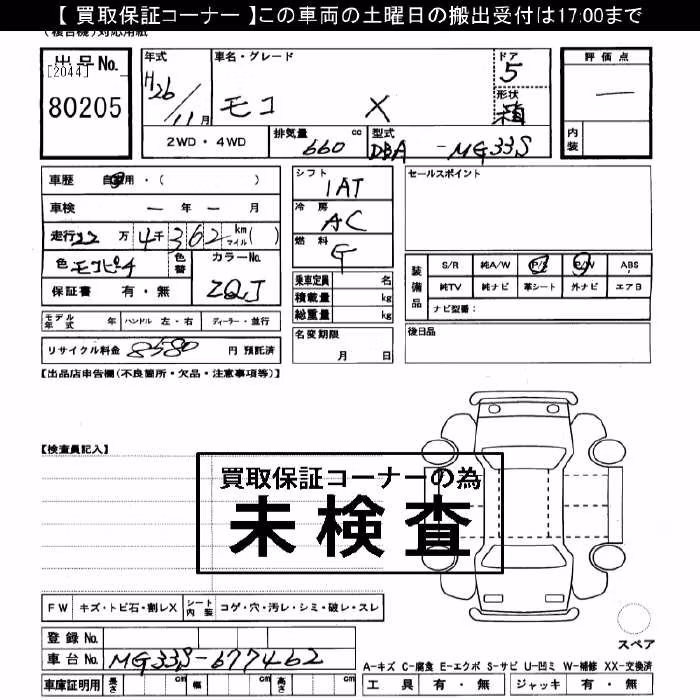 【 買取保証コーナー 】この車両の土曜日の搬出受付は17:00まで
(複合機)対応用紙
出品No.
[2044]
80205
年式
H26/11月
車名・グレード
モコ X
ドア
5
形状
箱
評価点
—
内装
2WD・4WD
排気量
660 cc
型式
DBA -MG33S
車歴 自家用・( )
車検 — 年 — 月
走行 22万4千362 km マイル( )
色 モコピーチ
色替
カラーNo.
ZQJ
保証書 有・無
モデル年式 年 ハンドル 左・右 ディーラー・並行
リサイクル料金 8580 円 預託済
シフト
1AT
冷房
AC
燃料
G
乗車定員 名
積載量 kg
総重量 kg
名変期限
月 日
セールスポイント
装備品
S/R 純A/W P/S P/W ABS
純TV 純ナビ 革シート 外ナビ エアB
ナビ型番：
後日品
【出品店申告欄(不良箇所・欠品・注意事項等)】
【検査員記入】
買取保証コーナーの為
未検査
FW キズ・トビ石・割レX シート内装 コゲ・穴・汚レ・シミ・破レ・スレ
スペア
登録No.
車台No. MG33S-677462
車庫証明用 長さ cm 幅 cm 高さ cm
A-キズ C-腐食 E-エクボ S-サビ U-凹ミ W-補修 XX-交換済
工具 有・無 ジャッキ 有・無